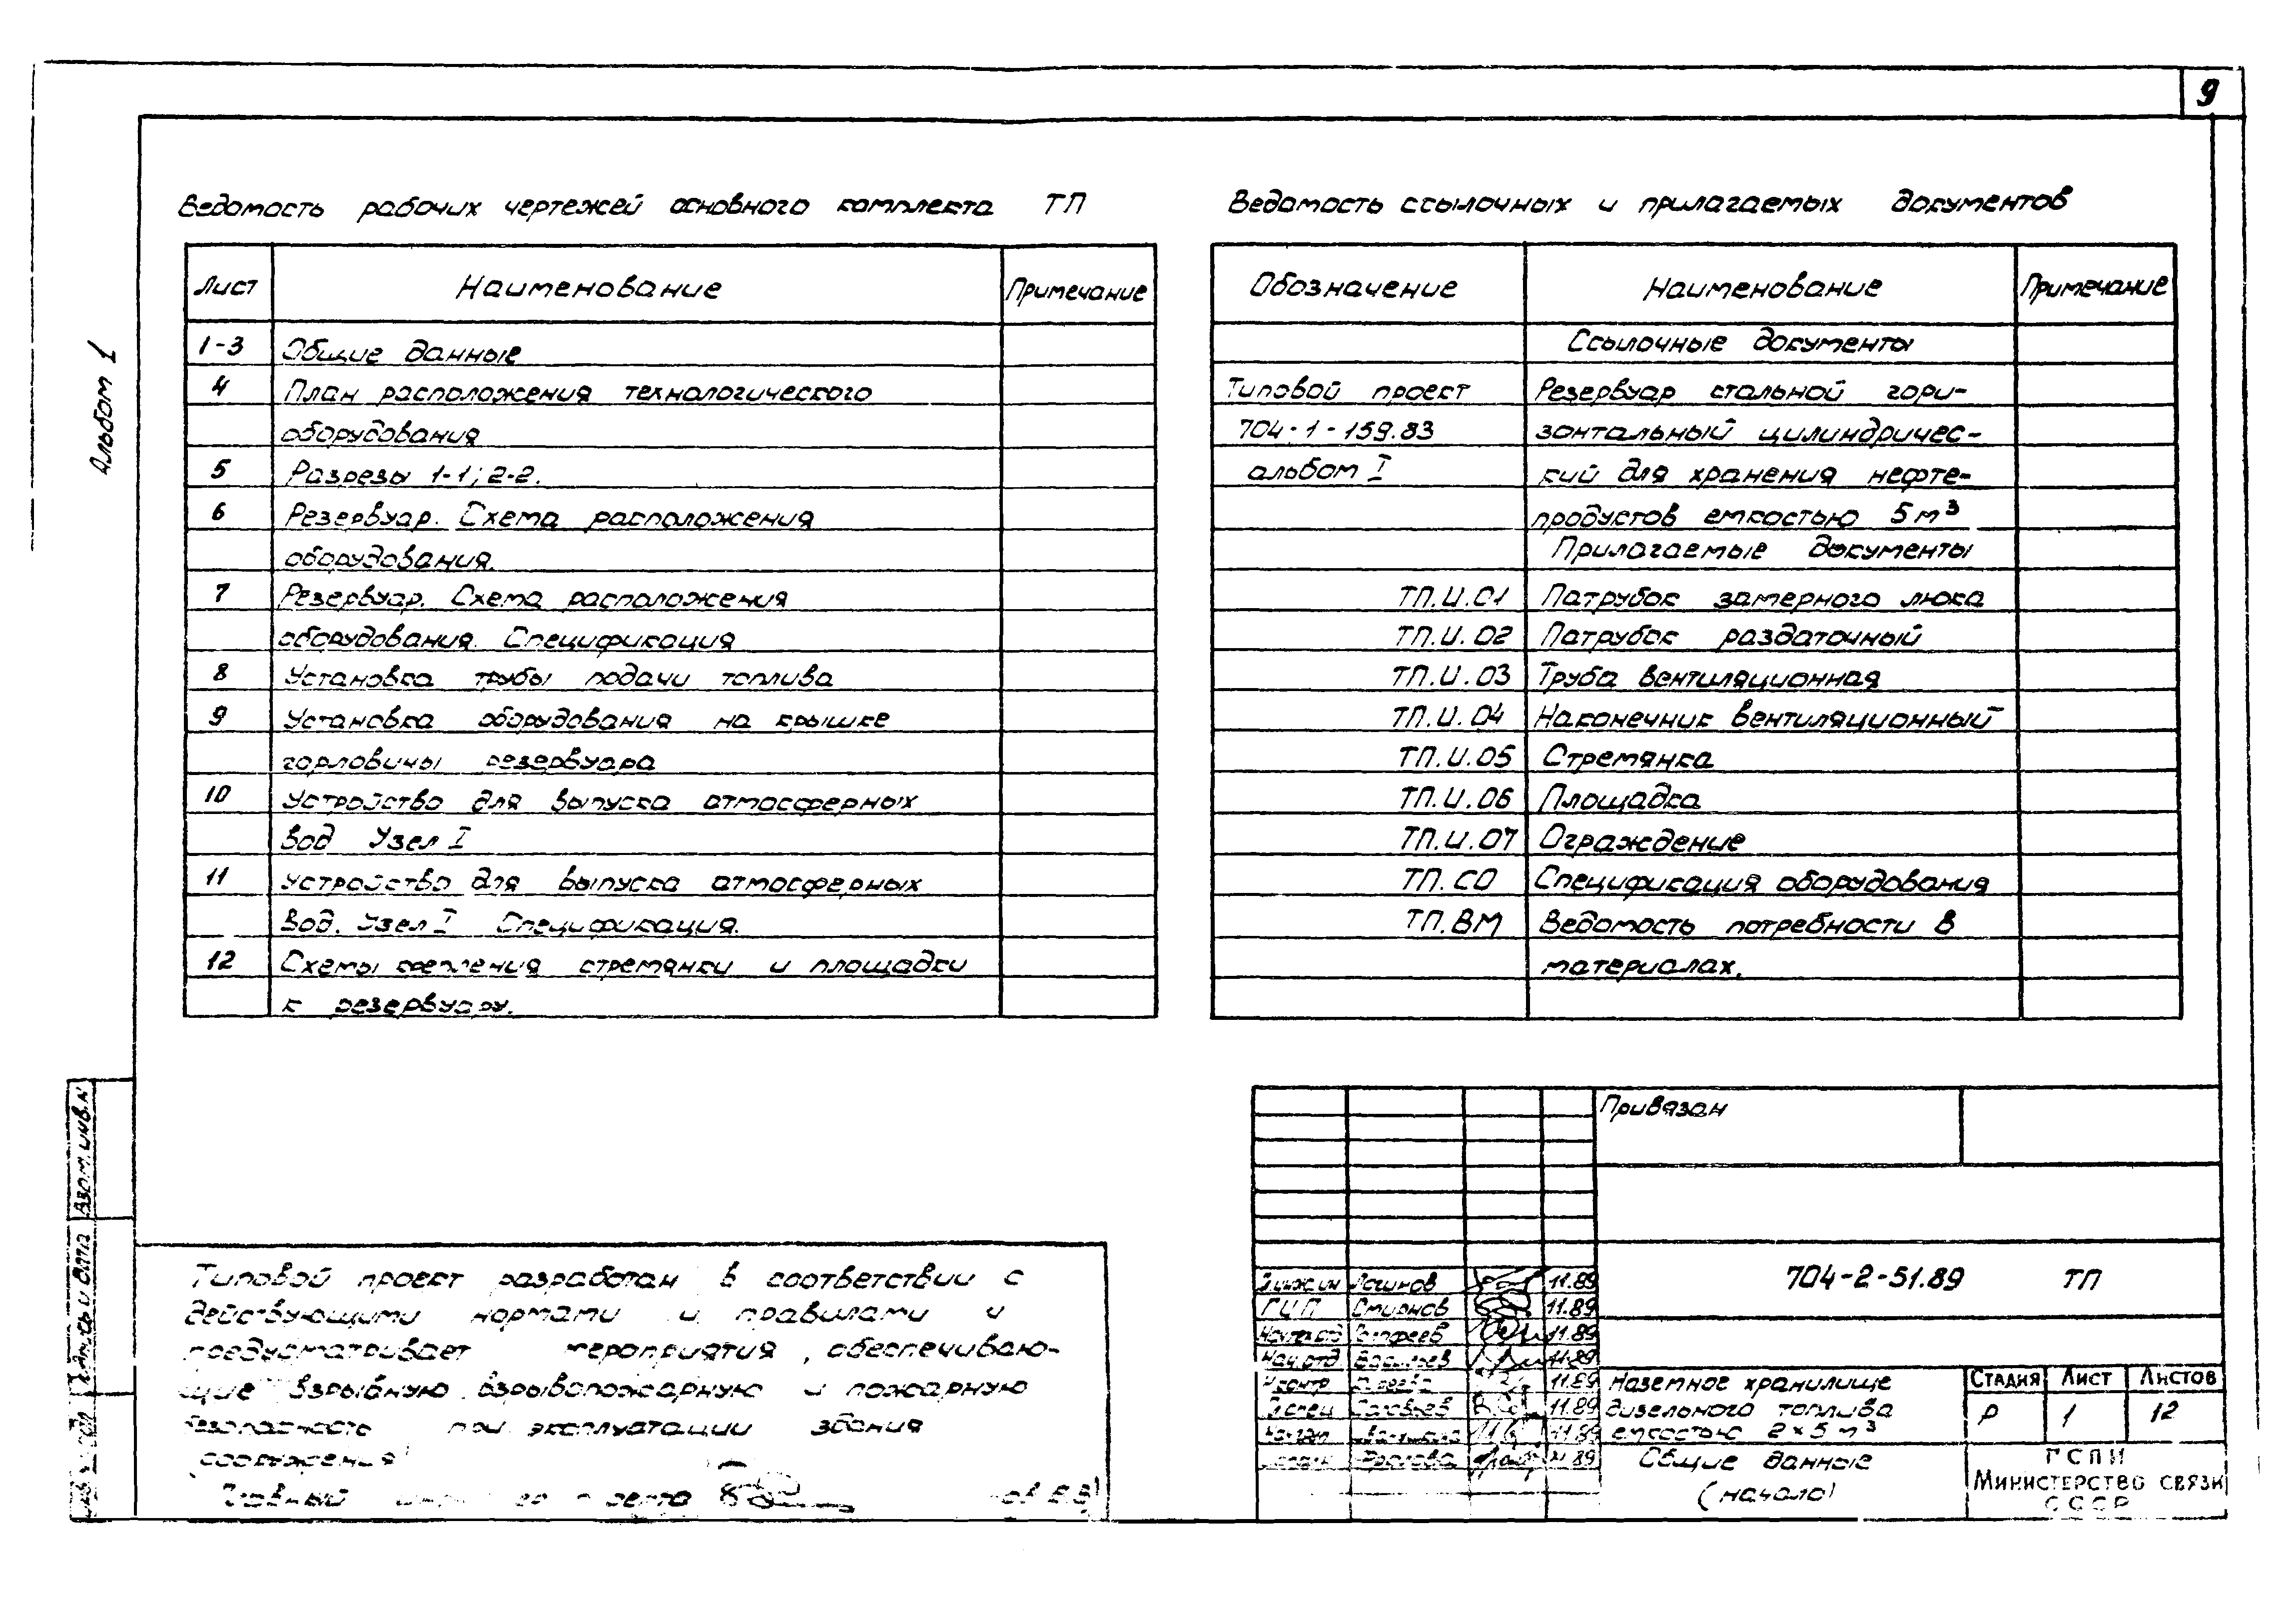 9
Альбом 1
Ведомость рабочих чертежей основного комплекта ТП
Лист Наименование Примечание
1-3 Общие данные
4 План расположения технологического
оборудования
5 Разрезы 1-1; 2-2.
6 Резервуар. Схема расположения
оборудования.
7 Резервуар. Схема расположения
оборудования. Спецификация
8 Установка трубы подачи топлива
9 Установка оборудования на крышке
горловины резервуара
10 Устройство для выпуска атмосферных
вод Узел I
11 Устройство для выпуска атмосферных
вод. Узел I Спецификация.
12 Схемы крепления стремянки и площадки
к резервуару.
Ведомость ссылочных и прилагаемых документов
Обозначение Наименование Примечание
Ссылочные документы
Типовой проект Резервуар стальной гори-
704-1-159.83 зонтальный цилиндричес-
альбом I кий для хранения нефте-
продуктов емкостью 5 м³
Прилагаемые документы
ТП.И.01 Патрубок замерного люка
ТП.И.02 Патрубок раздаточный
ТП.И.03 Труба вентиляционная
ТП.И.04 Наконечник вентиляционный
ТП.И.05 Стремянка
ТП.И.06 Площадка
ТП.И.07 Ограждение
ТП.СО Спецификация оборудования
ТП.ВМ Ведомость потребности в
материалах.
Взам.инв.№
Типовой проект разработан в соответствии с
действующими нормами и правилами и
предусматривает мероприятия, обеспечиваю-
щие взрывную, взрывопожарную и пожарную
безопасность при эксплуатации здания
(сооружения)
Главный проекта
Привязан
704-2-51.89 ТП
11.89
ГИП Смирнов 11.89
11.89
Нач.отд 11.89
Н.контр 11.89
11.89
11.89
Фролова 11.89
Наземное хранилище
дизельного топлива
емкостью 2×5 м³
Стадия Лист Листов
Р 1 12
Общие данные
(начало)
ГСПИ
Министерство связи
СССР